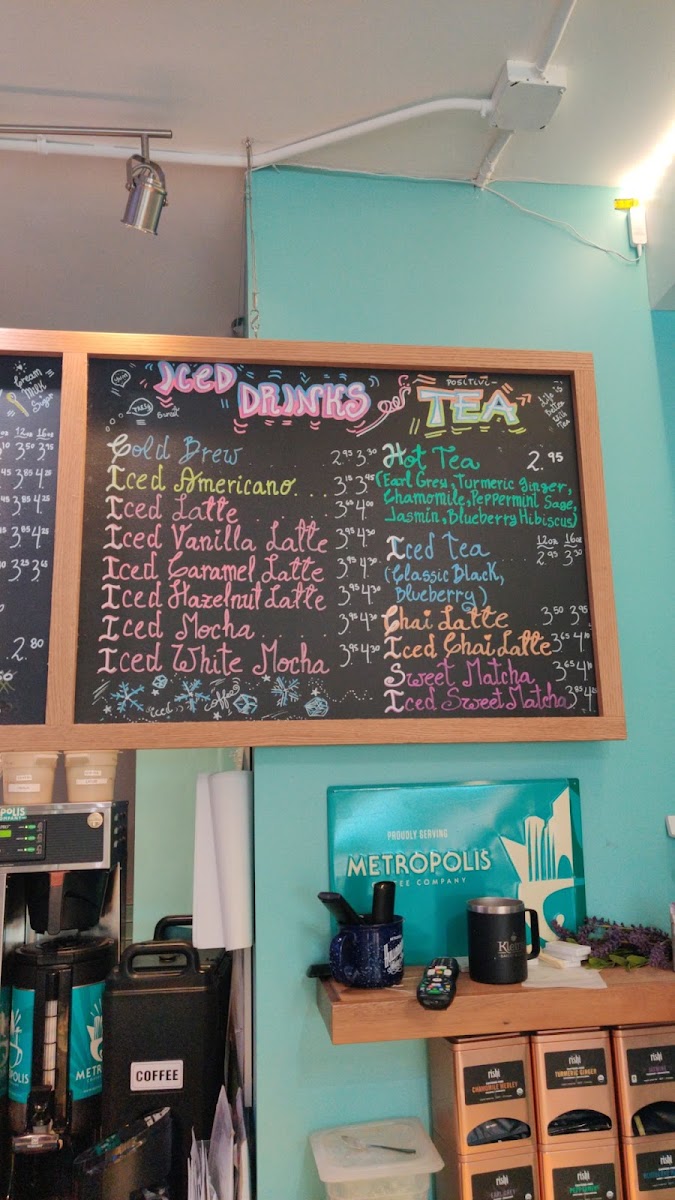 Cream
Milk
Sugar
12oz 16oz
3.50 3.95
3.85 4.25
3.85 4.25
3.85 4.25
3.25 3.65
2.80
ICED
DRINKS
Sweet
Cold Brew 2.95 3.30
Iced Americano.... 3.15 3.45
Iced Latte 3.65 4.00
Iced Vanilla Latte 3.95 4.30
Iced Caramel Latte 3.95 4.30
Iced Hazelnut Latte 3.95 4.30
Iced Mocha 3.95 4.30
Iced White Mocha 3.95 4.30
iced coffee
POSITIVI-
TEA
Life is
Better
With
Tea
Hot Tea 2.95
(Earl Grey, Turmeric Ginger,
Chamomile, Peppermint Sage,
Jasmin, Blueberry Hibiscus)
12oz 16oz
Iced Tea 2.95 3.50
(Classic Black,
Blueberry)
Chai Latte 3.50 3.95
Iced Chai Latte 3.65 4.10
Sweet Matcha 3.65 4.10
Iced Sweet Matcha 3.85 4.25
PROUDLY SERVING
METROPOLIS
COFFEE COMPANY
Klean
METROPOLIS
COFFEE
rishi
CHAMOMILE MEDLEY
rishi
TURMERIC GINGER
rishi
JASMINE
rishi
EARL GREY
rishi
PEPPERMINT
rishi